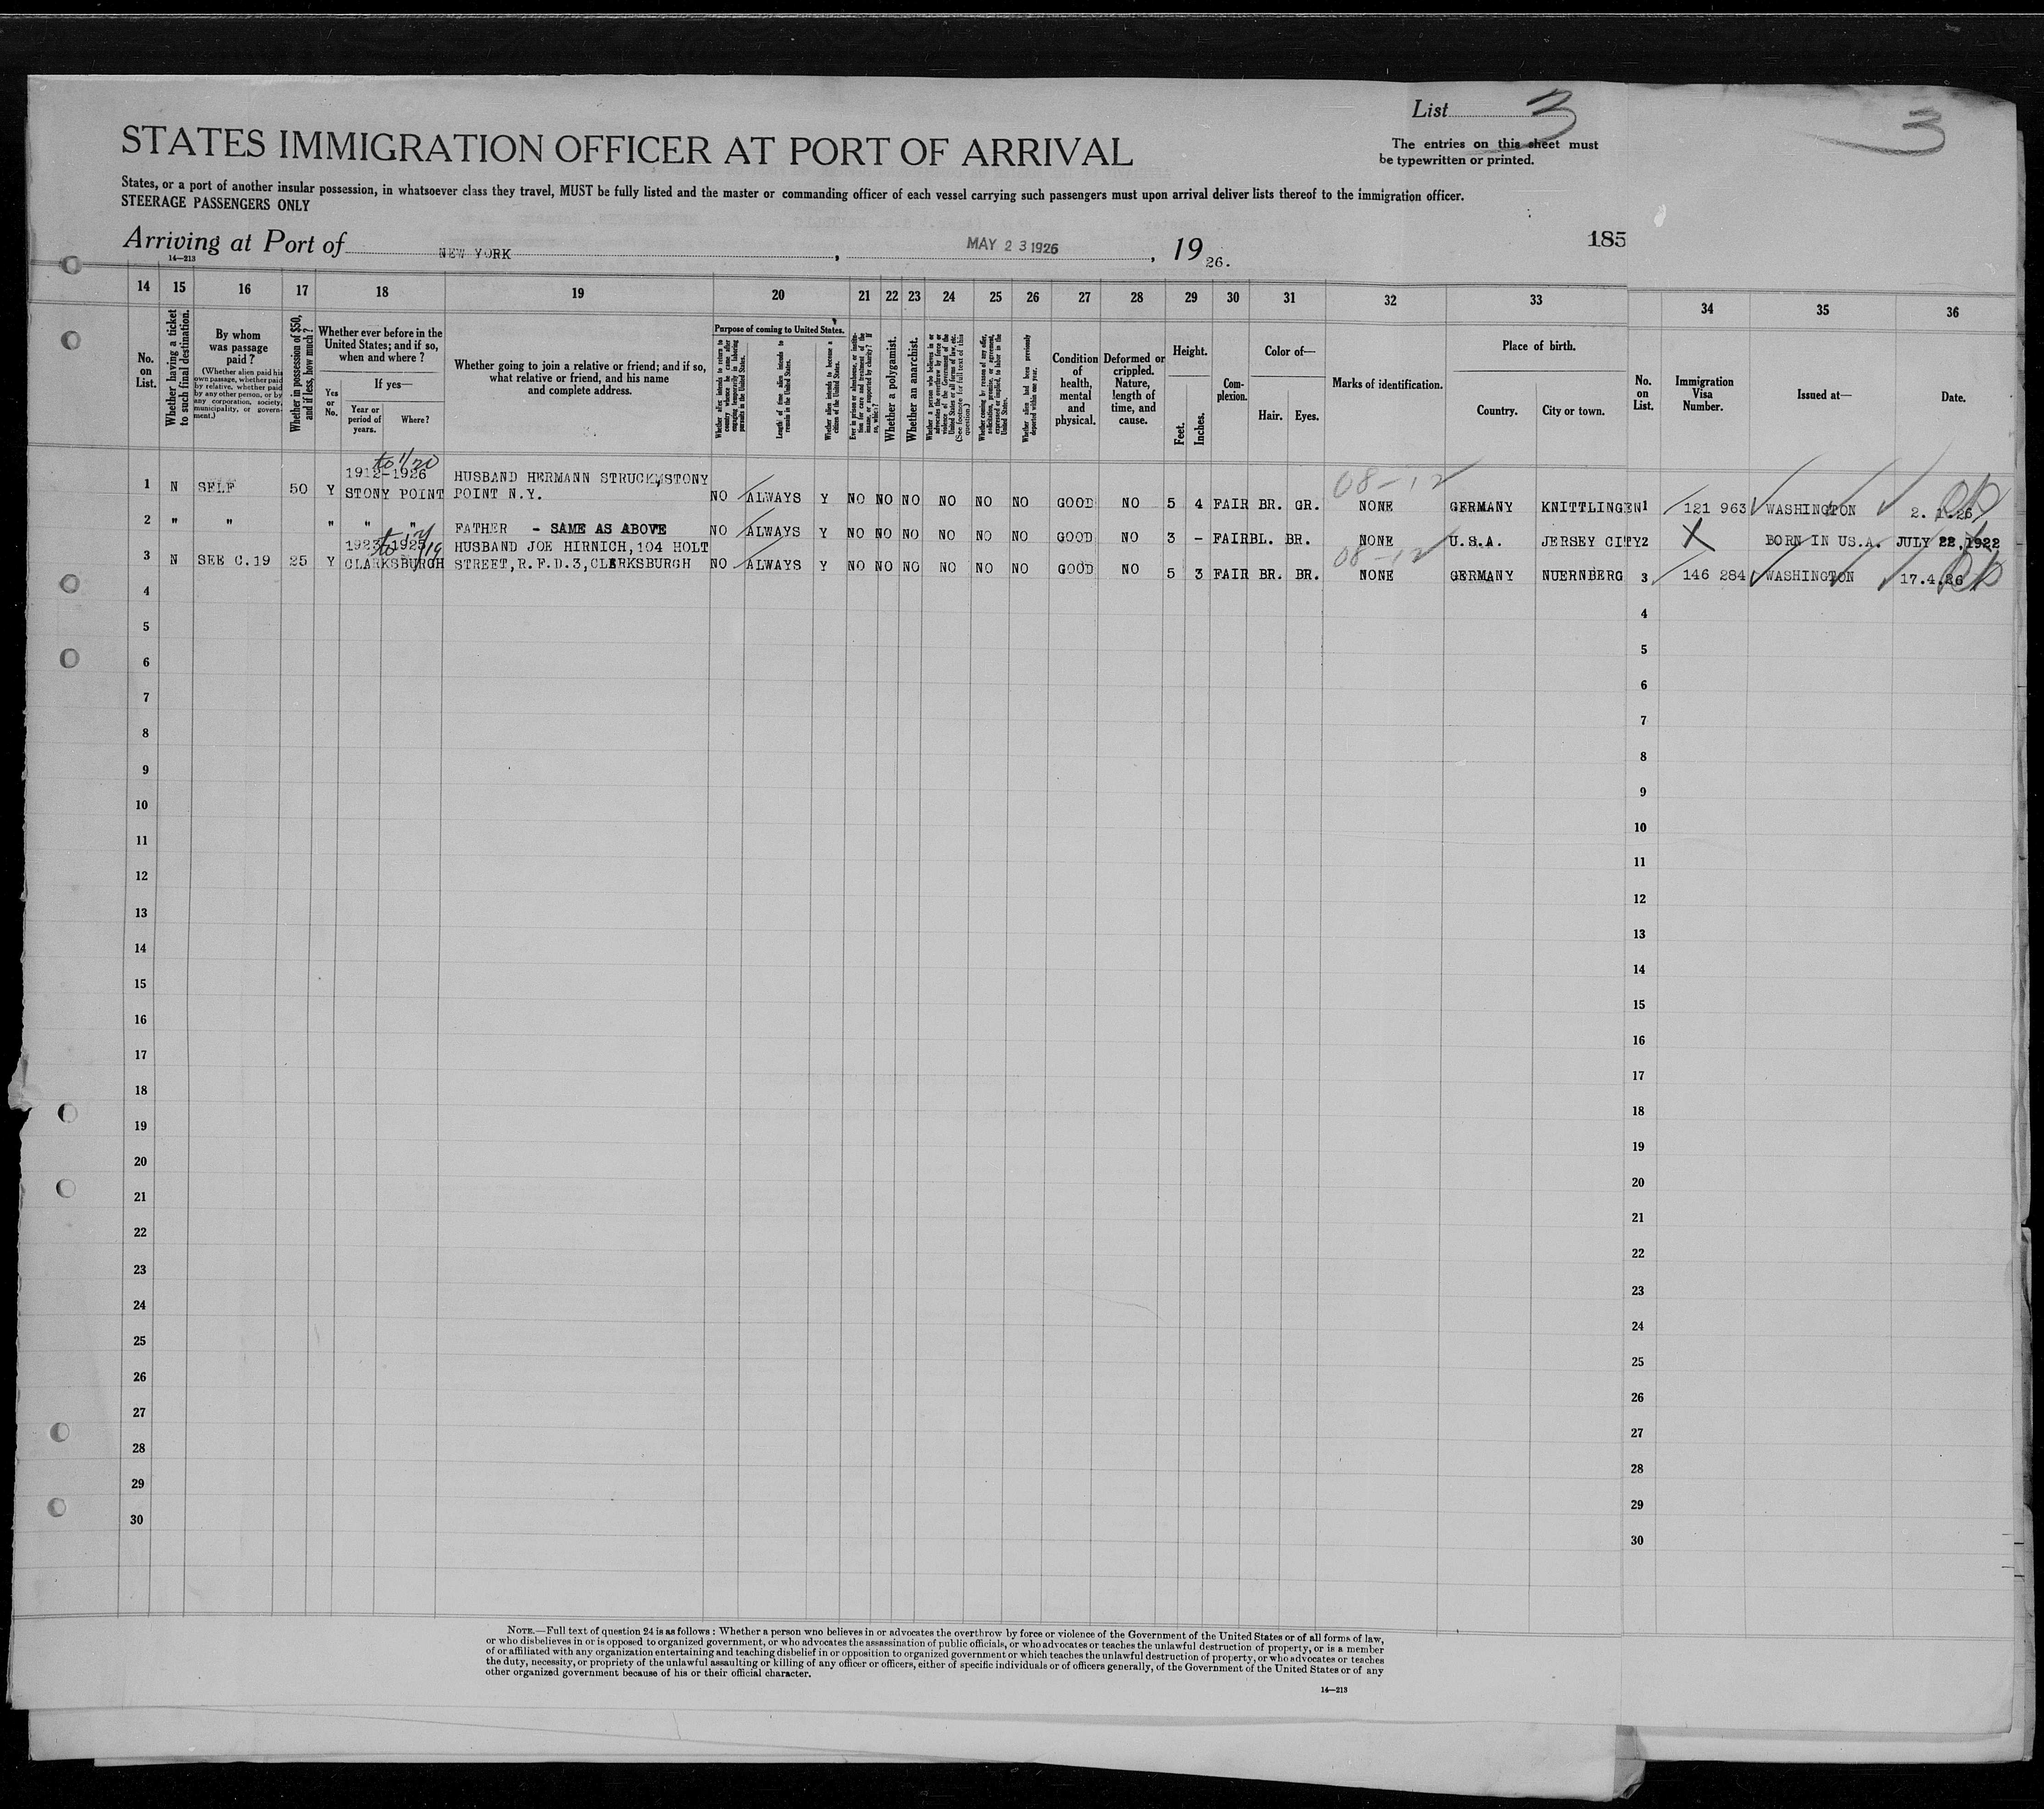 List 3
3
The entries on this sheet must
be typewritten or printed.
STATES IMMIGRATION OFFICER AT PORT OF ARRIVAL
States, or a port of another insular possession, in whatsoever class they travel, MUST be fully listed and the master or commanding officer of each vessel carrying such passengers must upon arrival deliver lists thereof to the immigration officer.
STEERAGE PASSENGERS ONLY
Arriving at Port of NEW YORK, MAY 23 1926, 19 26.
185
14—213
14 15 16 17 18 19 20 21 22 23 24 25 26 27 28 29 30 31 32 33 34 35 36
No. on List.
Whether having a ticket to such final destination.
By whom was passage paid?
(Whether alien paid his own passage, whether paid by relative, whether paid by any other person, or by any corporation, society, municipality, or government.)
Whether in possession of $50, and if less, how much?
Whether ever before in the United States; and if so, when and where?
Yes or No.
If yes—
Year or period of years.
Where?
Whether going to join a relative or friend; and if so, what relative or friend, and his name and complete address.
Purpose of coming to United States.
Whether alien intends to return to country whence he came after engaging temporarily in laboring pursuits in the United States.
Length of time alien intends to remain in the United States.
Whether alien intends to become a citizen of the United States.
Ever in prison or almshouse, or institution for care and treatment of the insane, or supported by charity? If so, which?
Whether a polygamist.
Whether an anarchist.
Whether a person who believes in or advocates the overthrow by force or violence of the Government of the United States or all forms of law, etc. (See footnote for full text of this question.)
Whether coming by reason of any offer, solicitation, promise, or agreement, expressed or implied, to labor in the United States.
Whether alien had been previously deported within one year.
Condition of health, mental and physical.
Deformed or crippled. Nature, length of time, and cause.
Height.
Feet. Inches.
Complexion.
Color of—
Hair. Eyes.
Marks of identification.
Place of birth.
Country. City or town.
No. on List.
Immigration Visa Number.
Issued at—
Date.
to 1/20
1912-1926 HUSBAND HERMANN STRUCK, STONY 08-12
1 N SELF 50 Y STONY POINT POINT N.Y. NO ALWAYS Y NO NO NO NO NO NO GOOD NO 5 4 FAIR BR. GR. NONE GERMANY KNITTLINGEN 1 121 963 WASHINGTON 2. 1.26
2 " " " " " FATHER - SAME AS ABOVE NO ALWAYS Y NO NO NO NO NO NO GOOD NO 3 - FAIR BL. BR. NONE U.S.A. JERSEY CITY 2 X BORN IN US.A. JULY 22, 1922
1923-1925 to HUSBAND JOE HIRNICH, 104 HOLT 08-12
3 N SEE C.19 25 Y CLARKSBURGH STREET, R.F.D.3, CLERKSBURGH NO ALWAYS Y NO NO NO NO NO NO GOOD NO 5 3 FAIR BR. BR. NONE GERMANY NUERNBERG 3 146 284 WASHINGTON 17.4.26
4 4
5 5
6 6
7 7
8 8
9 9
10 10
11 11
12 12
13 13
14 14
15 15
16 16
17 17
18 18
19 19
20 20
21 21
22 22
23 23
24 24
25 25
26 26
27 27
28 28
29 29
30 30
NOTE.—Full text of question 24 is as follows: Whether a person who believes in or advocates the overthrow by force or violence of the Government of the United States or of all forms of law,
or who disbelieves in or is opposed to organized government, or who advocates the assassination of public officials, or who advocates or teaches the unlawful destruction of property, or is a member
of or affiliated with any organization entertaining and teaching disbelief in or opposition to organized government or which teaches the unlawful destruction of property, or who advocates or teaches
the duty, necessity, or propriety of the unlawful assaulting or killing of any officer or officers, either of specific individuals or of officers generally, of the Government of the United States or of any
other organized government because of his or their official character.
14—213